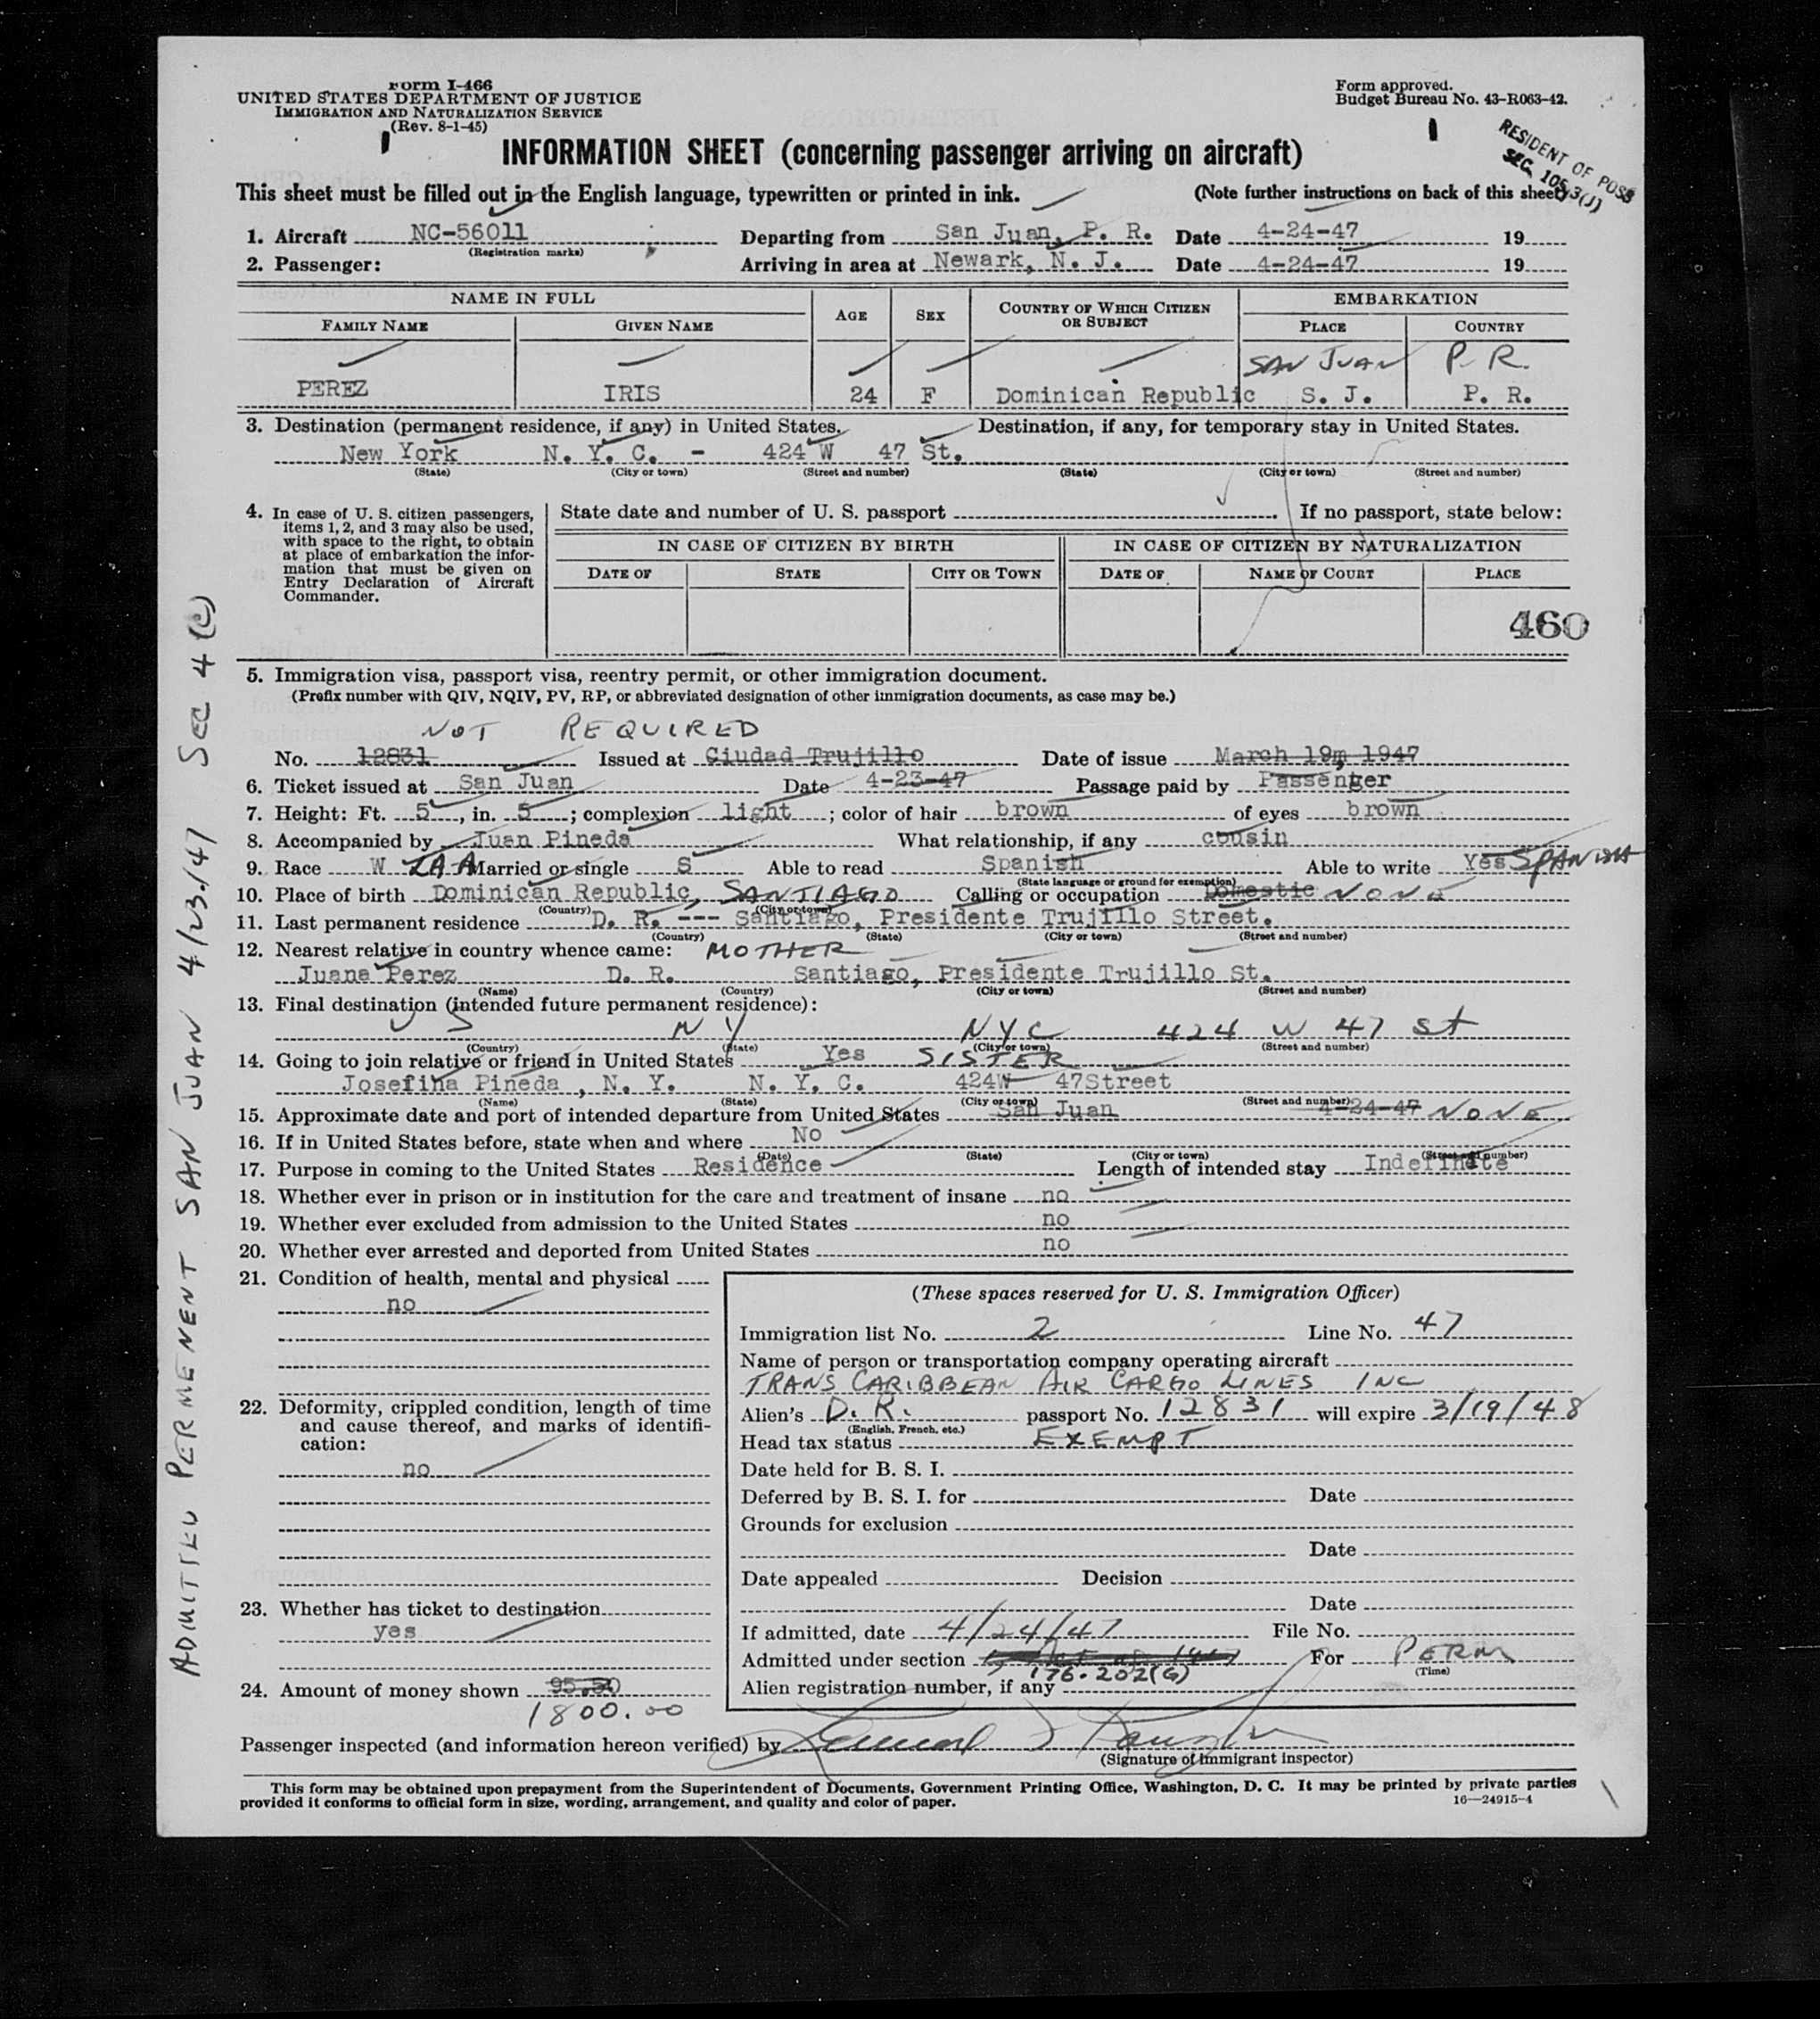 Form I-466
UNITED STATES DEPARTMENT OF JUSTICE
IMMIGRATION AND NATURALIZATION SERVICE
(Rev. 8-1-45)
Form approved.
Budget Bureau No. 43-R063-42.
INFORMATION SHEET (concerning passenger arriving on aircraft)
RESIDENT OF POSS
SEC. 105.3(J)
This sheet must be filled out in the English language, typewritten or printed in ink. (Note further instructions on back of this sheet)
1. Aircraft NC-56011 Departing from San Juan, P. R. Date 4-24-47 19
(Registration marks)
2. Passenger: Arriving in area at Newark, N. J. Date 4-24-47 19
NAME IN FULL AGE SEX COUNTRY OF WHICH CITIZEN OR SUBJECT EMBARKATION
FAMILY NAME GIVEN NAME PLACE COUNTRY
SAN JUAN P. R.
PEREZ IRIS 24 F Dominican Republic S. J. P. R.
3. Destination (permanent residence, if any) in United States. Destination, if any, for temporary stay in United States.
New York N. Y. C. - 424 W 47 St.
(State) (City or town) (Street and number) (State) (City or town) (Street and number)
4. In case of U. S. citizen passengers,
items 1, 2, and 3 may also be used,
with space to the right, to obtain
at place of embarkation the infor-
mation that must be given on
Entry Declaration of Aircraft
Commander.
State date and number of U. S. passport . If no passport, state below:
IN CASE OF CITIZEN BY BIRTH IN CASE OF CITIZEN BY NATURALIZATION
DATE OF STATE CITY OR TOWN DATE OF NAME OF COURT PLACE
460
5. Immigration visa, passport visa, reentry permit, or other immigration document.
(Prefix number with QIV, NQIV, PV, RP, or abbreviated designation of other immigration documents, as case may be.)
NOT REQUIRED
No. 12831 Issued at Ciudad Trujillo Date of issue March 19m 1947
6. Ticket issued at San Juan Date 4-23-47 Passage paid by Passenger
7. Height: Ft. 5, in. 5; complexion light; color of hair brown of eyes brown
8. Accompanied by Juan Pineda What relationship, if any cousin
9. Race W Married or single S Able to read Spanish Able to write Yes SPANISH
(State language or ground for exemption)
10. Place of birth Dominican Republic, SANTIAGO Calling or occupation Domestic NONE
(Country) (City or town)
11. Last permanent residence D. R. --- Santiago, Presidente Trujillo Street.
(Country) (State) (City or town) (Street and number)
12. Nearest relative in country whence came: MOTHER
Juana Perez D. R. Santiago, Presidente Trujillo St.
(Name) (Country) (City or town) (Street and number)
13. Final destination (intended future permanent residence):
U S N Y NYC 424 W 47 St
(Country) (State) (City or town) (Street and number)
14. Going to join relative or friend in United States Yes SISTER
Josefina Pineda , N. Y. N. Y. C. 424W 47Street
(Name) (State) (City or town) (Street and number)
15. Approximate date and port of intended departure from United States San Juan 4-24-47 NONE
16. If in United States before, state when and where No
(Date) (State) (City or town) (Street and number)
17. Purpose in coming to the United States Residence Length of intended stay Indefinate
18. Whether ever in prison or in institution for the care and treatment of insane no
19. Whether ever excluded from admission to the United States no
20. Whether ever arrested and deported from United States no
21. Condition of health, mental and physical
no
22. Deformity, crippled condition, length of time
and cause thereof, and marks of identifi-
cation:
no
23. Whether has ticket to destination
yes
24. Amount of money shown 95.50
1800.00
(These spaces reserved for U. S. Immigration Officer)
Immigration list No. 2 Line No. 47
Name of person or transportation company operating aircraft
TRANS CARIBBEAN AIR CARGO LINES INC
Alien's D. R. passport No. 12831 will expire 3/19/48
(English, French, etc.)
Head tax status EXEMPT
Date held for B. S. I.
Deferred by B. S. I. for Date
Grounds for exclusion
Date
Date appealed Decision
Date
If admitted, date 4/24/47 File No.
Admitted under section For PERM
(Time)
176.202(G)
Alien registration number, if any
Passenger inspected (and information hereon verified) by
(Signature of immigrant inspector)
This form may be obtained upon prepayment from the Superintendent of Documents, Government Printing Office, Washington, D. C. It may be printed by private parties
provided it conforms to official form in size, wording, arrangement, and quality and color of paper. 16—24915-4
ADMITTED PERMENENT SAN JUAN 4/23/47 SEC 4(c)